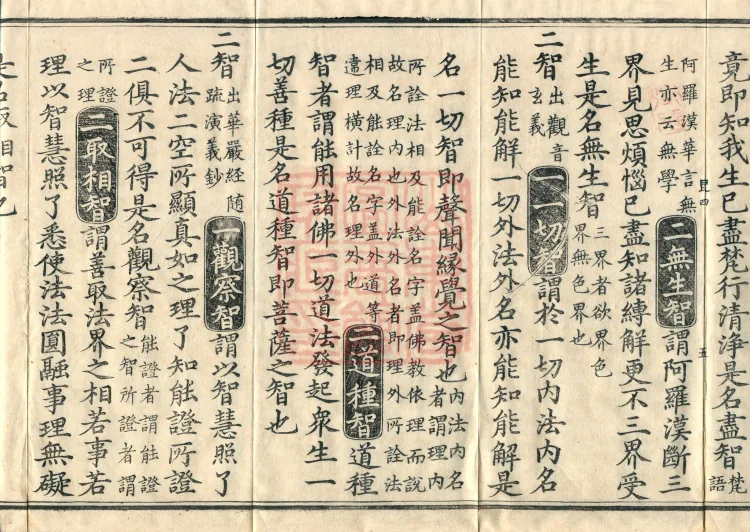 竟即知我生已盡梵行清淨是名盡智梵語
阿羅漢華言無生亦云無學二無生智謂阿羅漢斷三
五
界見思煩惱已盡知諸縛解更不三界受
生是名無生智三界者欲界色界無色界也
二智出觀音玄義一一切智謂於一切內法內名
能知能解一切外法外名亦能知能解是
名一切智即聲聞緣覺之智也內法內名者謂理內
所詮法相及能詮名字盖佛教依理而說故名理內也外法外名者即理外所詮法
相及能詮名字盖外道等違理橫計故名理外也二道種智道種
智者謂能用諸佛一切道法發起衆生一
切善種是名道種智即菩薩之智也
二智出華嚴經随疏演義鈔一觀察智謂以智慧照了
人法二空所顯真如之理了知能證所證
二俱不可得是名觀察智能證者謂能證之智所證者謂
所證之理二取相智謂善取法界之相若事若
理以智慧照了悉使法法圓融事理無礙
是名取相智也